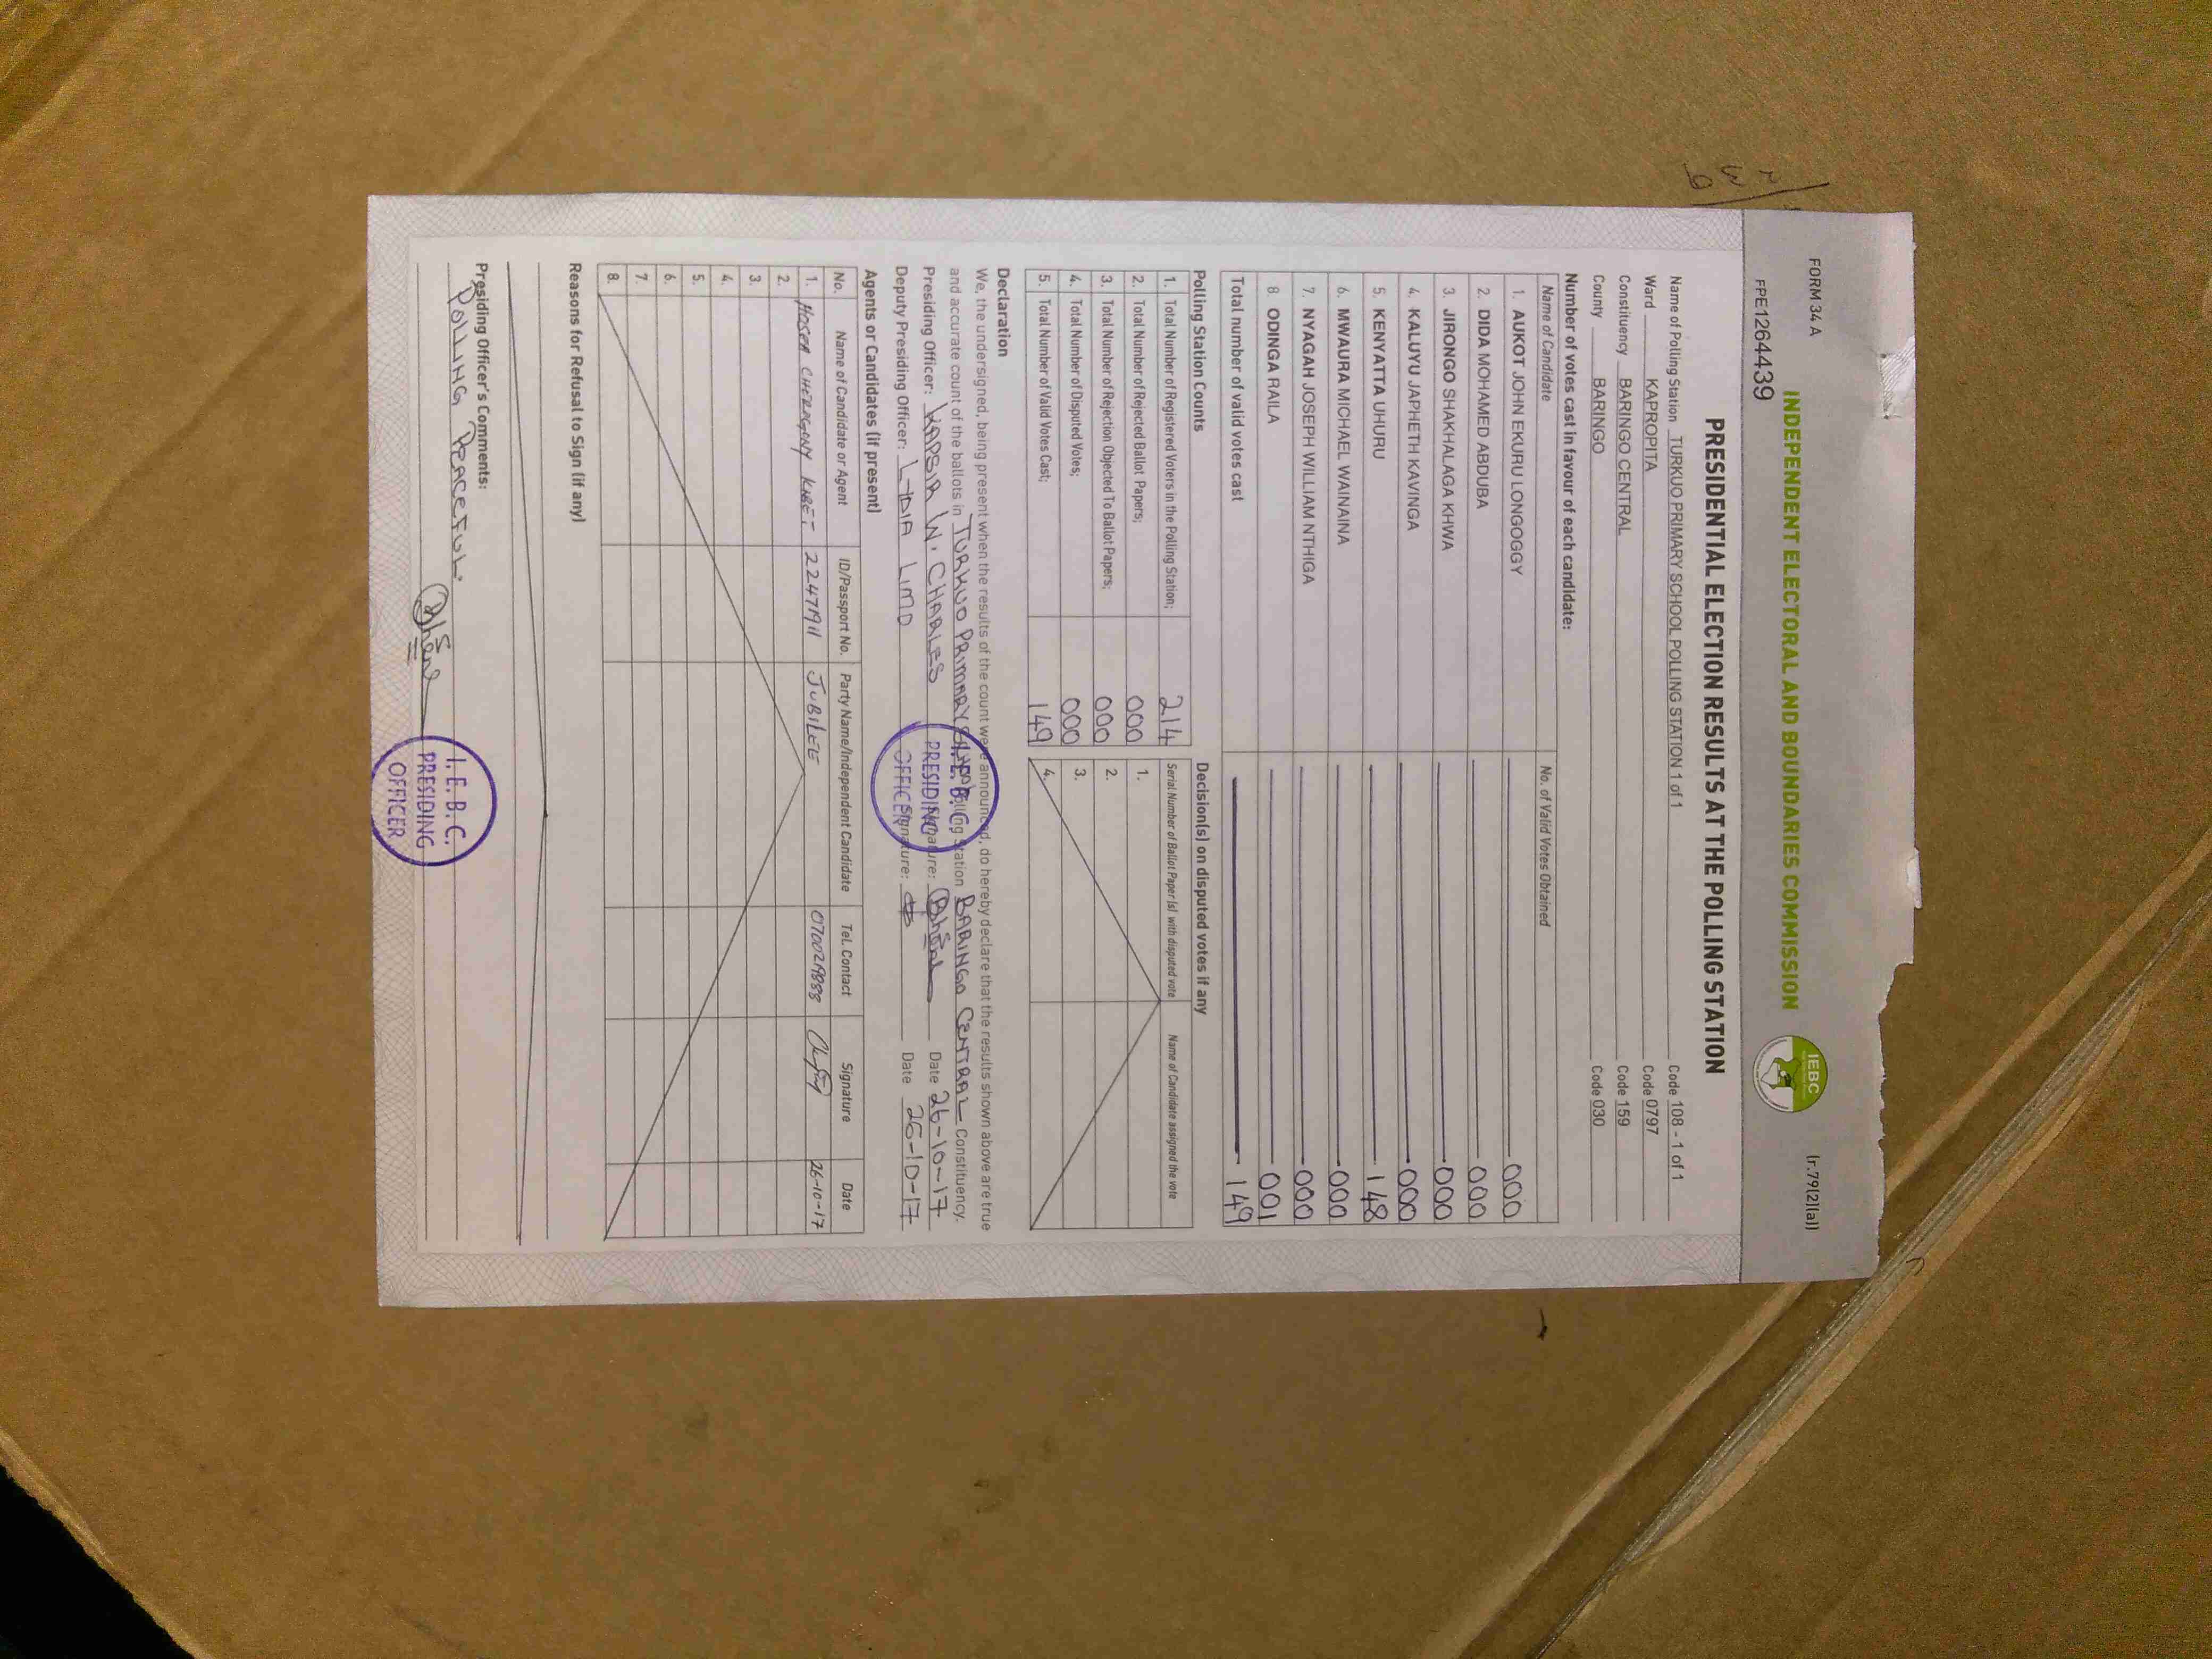 FORM 34 A
(r.79(2)(a))
INDEPENDENT ELECTORAL AND BOUNDARIES COMMISSION
IEBC
FPE1264439
PRESIDENTIAL ELECTION RESULTS AT THE POLLING STATION
Name of Polling Station TURKUO PRIMARY SCHOOL POLLING STATION 1 of 1 Code 108 - 1 of 1
Ward KAPROPITA Code 0797
Constituency BARINGO CENTRAL Code 159
County BARINGO Code 030
Number of votes cast in favour of each candidate:
Name of Candidate No. of Valid Votes Obtained
1. AUKOT JOHN EKURU LONGOGGY 000
2. DIDA MOHAMED ABDUBA 000
3. JIRONGO SHAKHALAGA KHWA 000
4. KALUYU JAPHETH KAVINGA 000
5. KENYATTA UHURU 148
6. MWAURA MICHAEL WAINAINA 000
7. NYAGAH JOSEPH WILLIAM NTHIGA 000
8. ODINGA RAILA 001
Total number of valid votes cast 149
Polling Station Counts
1. Total Number of Registered Voters in the Polling Station; 214
2. Total Number of Rejected Ballot Papers; 000
3. Total Number of Rejection Objected To Ballot Papers; 000
4. Total Number of Disputed Votes; 000
5. Total Number of Valid Votes Cast; 149
Decision(s) on disputed votes if any
Serial Number of Ballot Paper(s) with disputed vote Name of Candidate assigned the vote
1.
2.
3.
4.
Declaration
We, the undersigned, being present when the results of the count were announced, do hereby declare that the results shown above are true
and accurate count of the ballots in TURKUO PRIMARY Polling Station BARINGO CENTRAL Constituency.
Presiding Officer: KAPSIR W. CHARLES Signature: Date 26-10-17
Deputy Presiding Officer: LYDIA LIMO Signature: Date 26-10-17
I.E.B.C.
PRESIDING
OFFICER
Agents or Candidates (if present)
No. Name of Candidate or Agent ID/Passport No. Party Name/Independent Candidate Tel. Contact Signature Date
1. HOSEA KIBET 22471911 JUBILEE 26-10-17
2.
3.
4.
5.
6.
7.
8.
Reasons for Refusal to Sign (if any)
Presiding Officer's Comments:
POLLING PEACEFUL.
I.E.B.C.
PRESIDING
OFFICER